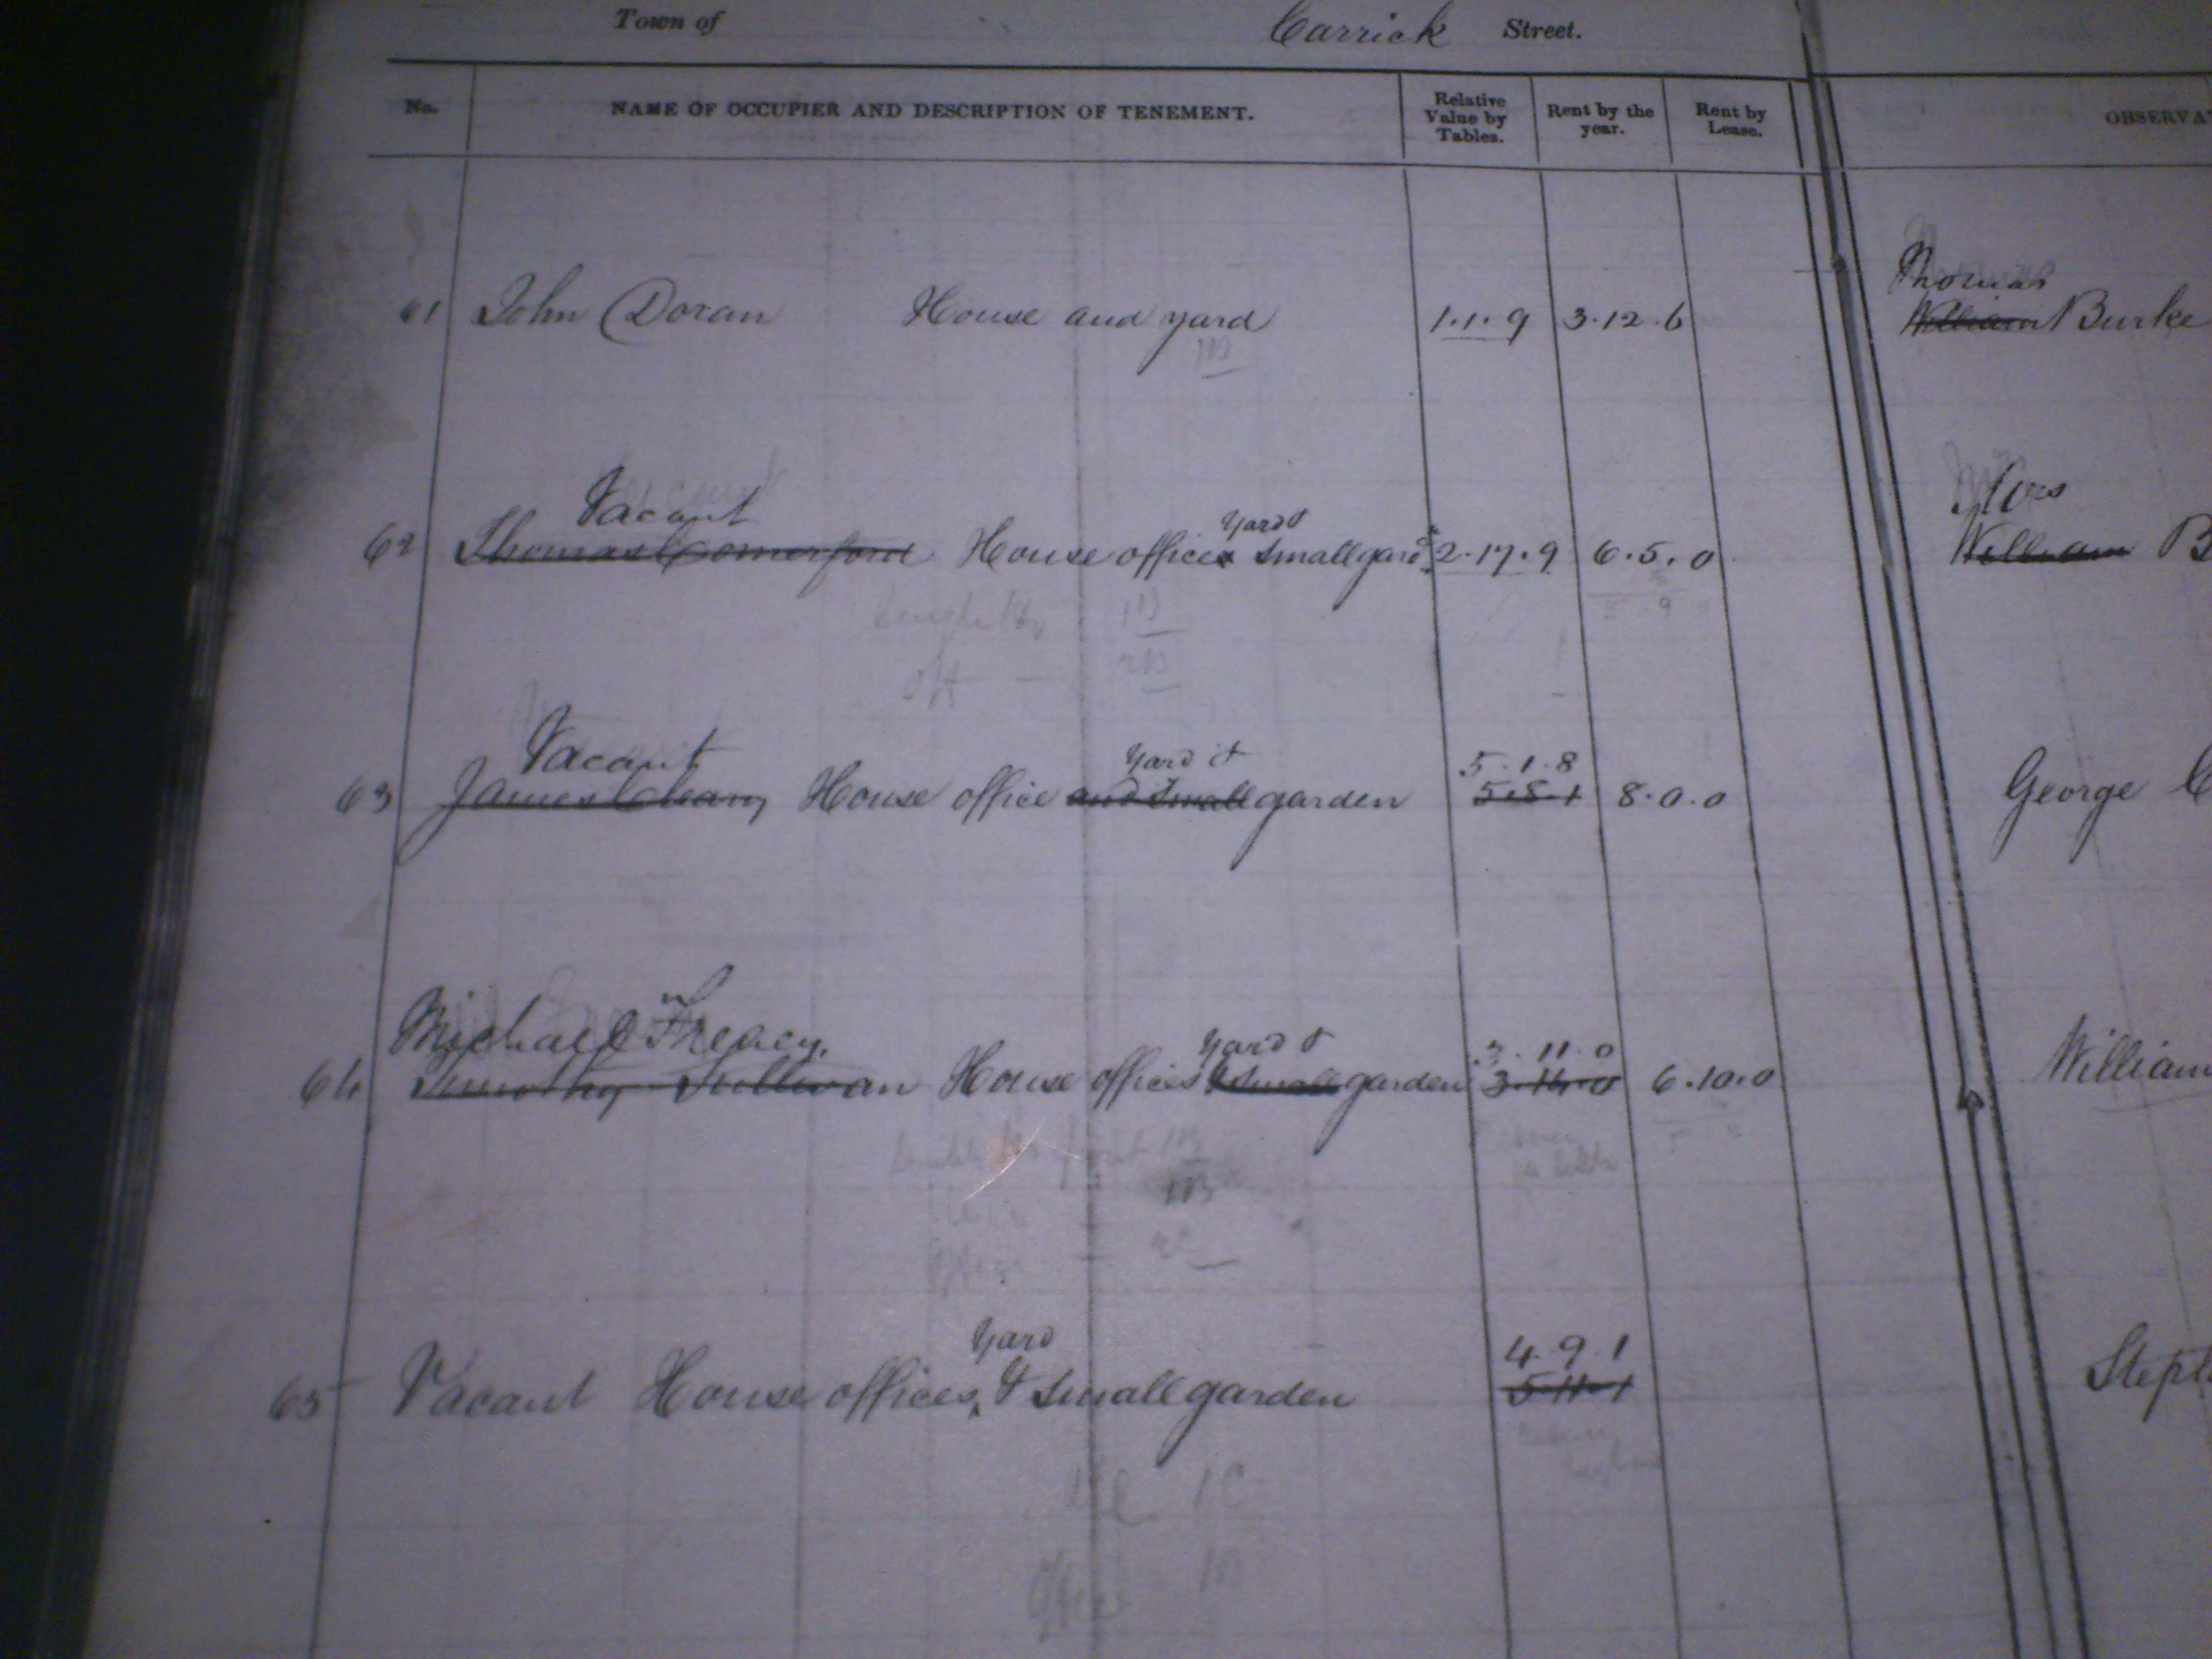 Town of Carrick Street.
No. NAME OF OCCUPIER AND DESCRIPTION OF TENEMENT. Relative Value by Tables. Rent by the year. Rent by Lease. OBSERVAT
Thomas
61 John Doran House and yard 1.1.9 3.12.6 William Burke
1B
Vacant yard &
62 Thomas Comerford House offices small gard 2.17.9 6.5.0 William B
1B
off — 2B
Vacant yard & 5.1.8
63 James Cleary House office and small garden 5.8.1 8.0.0 George C
Michael Treacy. yard & 3.11.0
64 Timothy Sullivan House offices & small garden 3.14.0 6.10.0 William
1B
1B
yard 4.9.1
65 Vacant House offices, & small garden 5.11.1 Steph
1C
Office 1B